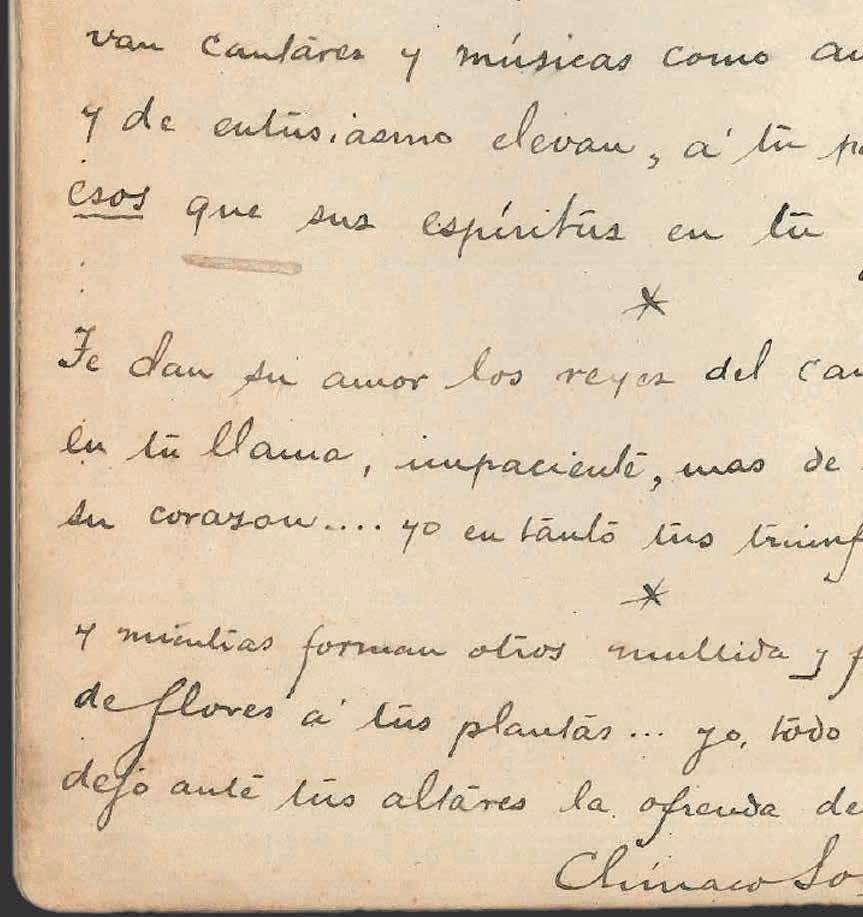 van cantáres y músicas como
y de entusiasmo elevan, á tu
esos que sus espíritus en tu
*
Te dan su amor los reyes del
en tu llama, impaciente, mas de
su corazon.... yo en tanto tus
*
y mientras forman otros mullida y
de flores á tus plantas... yo, todo
dejo ante tus altáres la ofrenda de
Clímaco